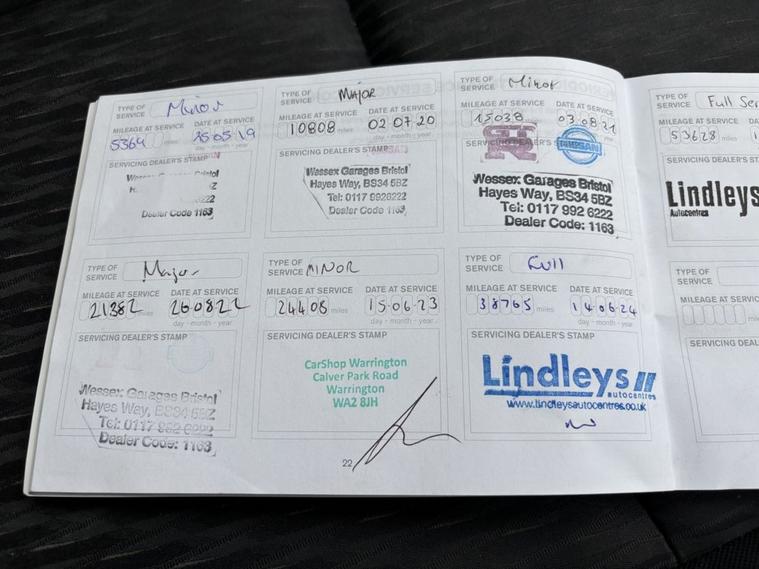 TYPE OF SERVICE Minor
MILEAGE AT SERVICE DATE AT SERVICE
5364 miles 25 05 19
day - month - year
SERVICING DEALER'S STAMP
Dealer Code 1163
TYPE OF SERVICE MAJOR
MILEAGE AT SERVICE DATE AT SERVICE
10808 miles 02 07 20
day - month - year
SERVICING DEALER'S STAMP
Wessex Garages Bristol
Hayes Way, BS34 5BZ
Tel: 0117 9926222
Dealer Code 1163
TYPE OF SERVICE Minor
MILEAGE AT SERVICE DATE AT SERVICE
15038 miles 03 08 21
SERVICING DEALER'S STAMP
GTR
Wessex Garages Bristol
Hayes Way, BS34 5BZ
Tel: 0117 992 6222
Dealer Code: 1163
TYPE OF SERVICE Full
MILEAGE AT SERVICE
53628 miles
SERVICING DEALER'S
Lindleys
Autocentres
TYPE OF SERVICE Major
MILEAGE AT SERVICE DATE AT SERVICE
21382 miles 26 08 22
day - month - year
SERVICING DEALER'S STAMP
Wessex Garages Bristol
Hayes Way, BS34 5BZ
Tel: 0117 992 6222
Dealer Code: 1163
TYPE OF SERVICE MINOR
MILEAGE AT SERVICE DATE AT SERVICE
24408 miles 15 06 23
day - month - year
SERVICING DEALER'S STAMP
CarShop Warrington
Calver Park Road
Warrington
WA2 8JH
22
TYPE OF SERVICE Full
MILEAGE AT SERVICE DATE AT SERVICE
38765 miles 14 06 24
day - month - year
SERVICING DEALER'S STAMP
Lindleys
autocentres
www.lindleysautocentres.co.uk
TYPE OF SERVICE
MILEAGE AT SERVICE
miles
SERVICING DEALER'S